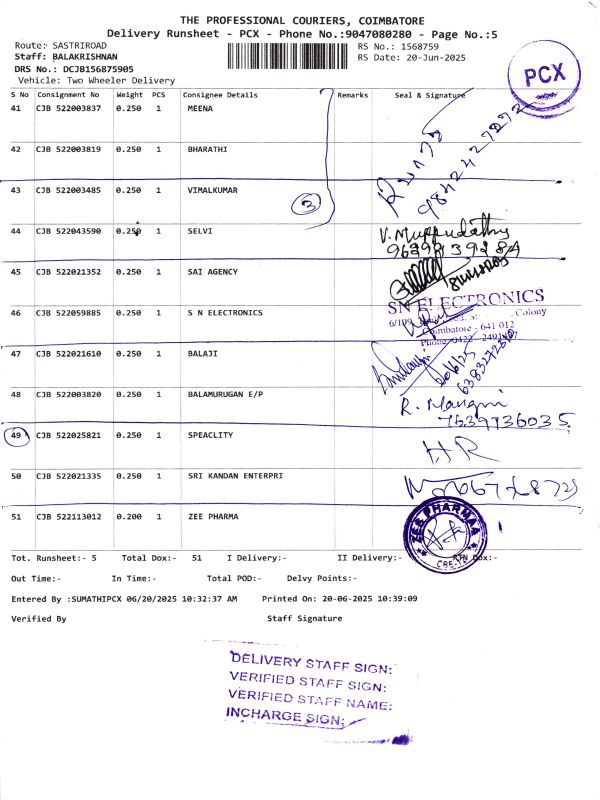 THE PROFESSIONAL COURIERS, COIMBATORE
Delivery Runsheet - PCX - Phone No.:9047080280 - Page No.:5
Route: SASTRIROAD
RS No.: 1568759
Staff: BALAKRISHNAN
RS Date: 20-Jun-2025
DRS No.: DCJB156875905
Vehicle: Two Wheeler Delivery
PCX
S No Consignment No Weight PCS Consignee Details Remarks Seal & Signature
41 CJB 522003837 0.250 1 MEENA
42 CJB 522003819 0.250 1 BHARATHI
9842427872
43 CJB 522003485 0.250 1 VIMALKUMAR
3
44 CJB 522043590 0.250 1 SELVI
V. Muppudathy
45 CJB 522021352 0.250 1 SAI AGENCY
46 CJB 522059885 0.250 1 S N ELECTRONICS
SN ELECTRONICS
6/109 Colony
- 641 012
Phone: 0422
47 CJB 522021610 0.250 1 BALAJI
48 CJB 522003820 0.250 1 BALAMURUGAN E/P
R. Mangni
7639736035
49 CJB 522025821 0.250 1 SPEACLITY
HR
50 CJB 522021335 0.250 1 SRI KANDAN ENTERPRI
51 CJB 522113012 0.200 1 ZEE PHARMA
ZEE PHARMAA
Tot. Runsheet:- 5 Total Dox:- 51 I Delivery:- II Delivery:- RTN Dox:-
Out Time:- In Time:- Total POD:- Delvy Points:-
Entered By :SUMATHIPCX 06/20/2025 10:32:37 AM Printed On: 20-06-2025 10:39:09
Verified By Staff Signature
DELIVERY STAFF SIGN:
VERIFIED STAFF SIGN:
VERIFIED STAFF NAME:
INCHARGE SIGN: